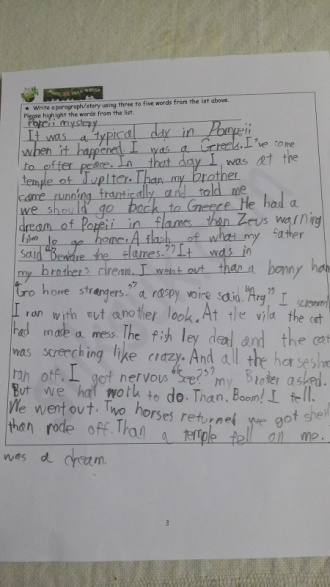 ★ Write a paragraph/story using three to five words from the list above.
Please highlight the words from the list.
Popeii mystery
It was a typical day in Pompeii
when it happened I was a Gereek. I've come
to offer peace. In that day I was at the
temple of Jupiter. Than my brother
came running frantically and told me
we should go back to Greece He had a
dream of Popeii in flames than Zeus warning
him to go home. A flash of what my father
said "Beware the flames." It was in
my brothers dream. I went out than a bonny han
"Go home strangers." a raspy voice said. "Arg" I screamed
I ran with out another look. At the vila the cat
had made a mess. The fish ley dead and the cat
was screeching like crazy. And all the horses ha
ran off. I got nervous "See?" my Brother asked.
But we hat work to do. Than. Boom! I fell.
We went out. Two horses returned we got
than rode off. Than a temple fell on me.
was a dream
3